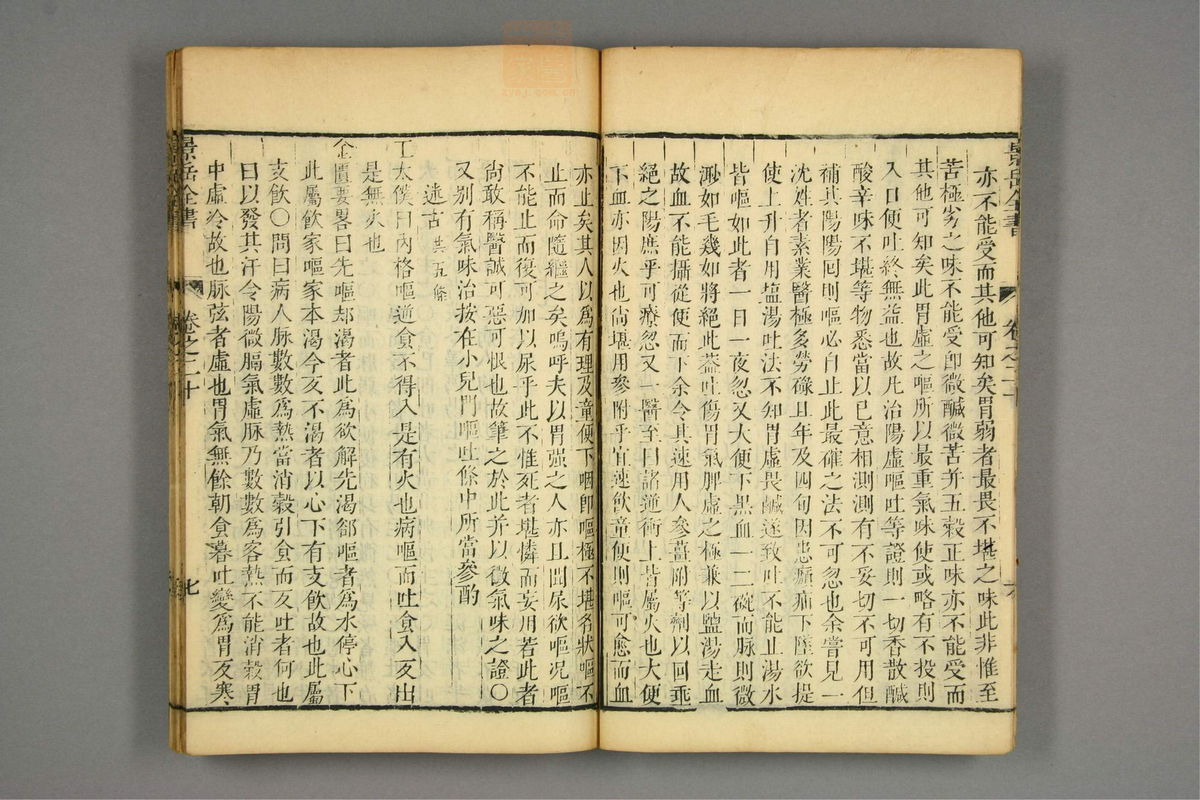 景岳全書
卷之二十
亦不能受而其他可知矣胃弱者最畏不堪之味此非惟至
苦極劣之味不能受卽微鹹微苦并五穀正味亦不能受而
其他可知矣此胃虛之嘔所以最重氣味使或略有不投則
入口便吐終無益也故凡治陽虛嘔吐等證則一切香散鹹
酸辛味不堪等物悉當以己意相測測有不妥切不可用但
補其陽陽囘則嘔必自止此最確之法不可忽也余嘗見一
沈姓者素業醫極多勞碌且年及四旬因患㿉疝下墜欲提
使上升自用塩湯吐法不知胃虛畏鹹遂致吐不能止湯水
皆嘔如此者一日一夜忽又大便下黑血一二碗而脉則微
渺如毛幾如將絕此葢吐傷胃氣脾虛之極兼以鹽湯走血
故血不能攝從便而下余令其速用人參薑附等劑以囘垂
絕之陽庶乎可療忽又一醫至曰諸逆衝上皆屬火也大便
下血亦因火也尙堪用參附乎宜速飲童便則嘔可愈而血
亦止矣其人以爲有理及童便下咽卽嘔極不堪名狀嘔不
止而命隨繼之矣嗚呼夫以胃强之人亦且聞尿欲嘔况嘔
不能止而復可加以尿乎此不惟死者堪憐而妄用若此者
尙敢稱醫誠可惡可恨也故筆之於此并以徵氣味之證〇
又别有氣味治按在小兒門嘔吐條中所當參酌
述古 共五條
王太僕曰内格嘔逆食不得入是有火也病嘔而吐食入反出
是無火也
金匱要畧曰先嘔却渴者此爲欲解先渴郤嘔者爲水停心下
此屬飲家嘔家本渴今反不渴者以心下有支飲故也此屬
支飲〇問曰病人脉數數爲熱當消穀引食而反吐者何也
曰以發其汗令陽微膈氣虛脉乃數數爲客熱不能消穀胃
中虛冷故也脉弦者虛也胃氣無餘朝食暮吐變爲胃反寒
景岳全書
卷之二十